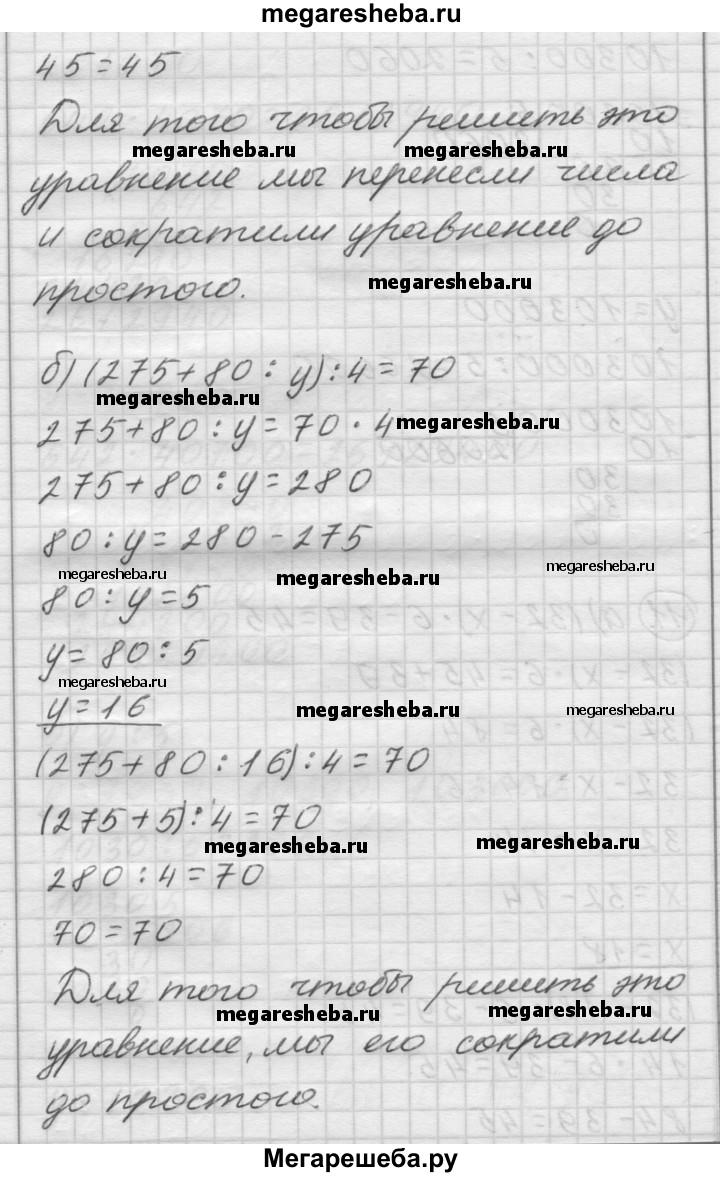 megaresheba.ru
45=45
Для того чтобы решить это
megaresheba.ru megaresheba.ru
уравнение мы перенесли числа
и сократили уравнение до
простого. megaresheba.ru
б) (275+80:у):4=70
megaresheba.ru
275+80:у=70·4 megaresheba.ru
275+80:у=280
80:у=280-275
megaresheba.ru megaresheba.ru megaresheba.ru
80:у=5
у=80:5
megaresheba.ru
у=16 megaresheba.ru megaresheba.ru
(275+80:16):4=70
(275+5):4=70
megaresheba.ru megaresheba.ru
280:4=70
70=70
Для того чтобы решить это
megaresheba.ru megaresheba.ru
уравнение, мы его сократили
до простого.
Мегарешеба.ру